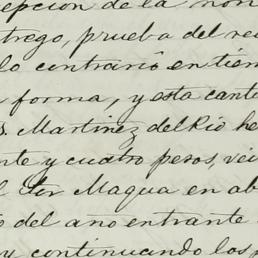 epcion de la non
trego, prueba del re
lo contrario en tiem
forma, y esta cant
s. Martinez del Rio he
nte y cuatro pesos, vei
l Sor Maqua en ab
o del año entrante
y continuando los p